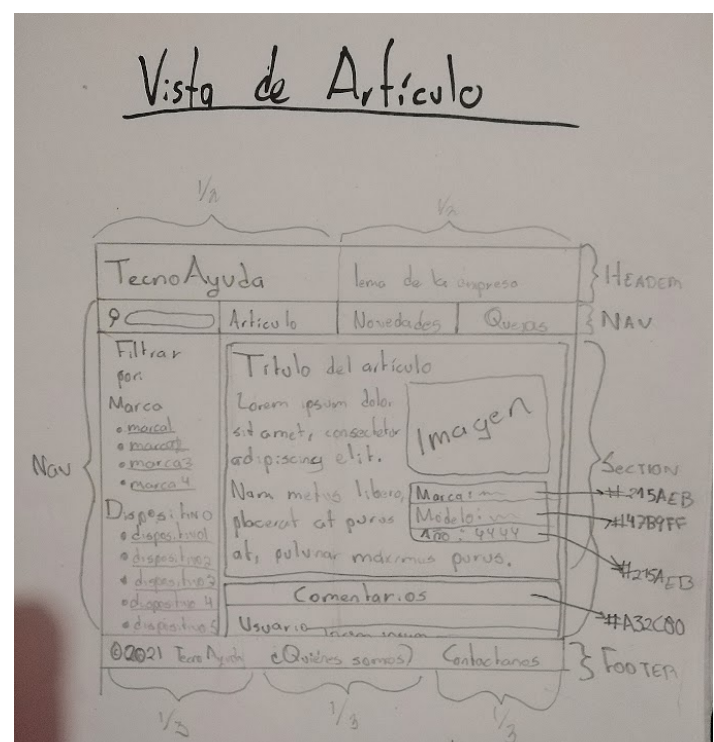 Vista de Artículo
1/2
1/2
TecnoAyuda
lema de la empresa
HEADER
Articulo
Novedades
Quejas
NAV
Filtrar
por:
Marca
marca1
marca2
marca3
marca4
Dispositivo
dispositivo1
dispositivo2
dispositivo3
dispositivo 4
dispositivo 5
NAV
Título del artículo
Lorem ipsum dolor
sit amet, consectetor
adipiscing elit.
Imagen
Nam metus libero,
placerat at purus
at, pulvinar maximus purus.
Marca:
Modelo:
Año: 4444
SECTION
#215AEB
#47B9FF
#215AEB
Comentarios
#A32C80
Usuario
©2021 TecnoAyuda
¿Quiénes somos?
Contactanos
FOOTER
1/3
1/3
1/3